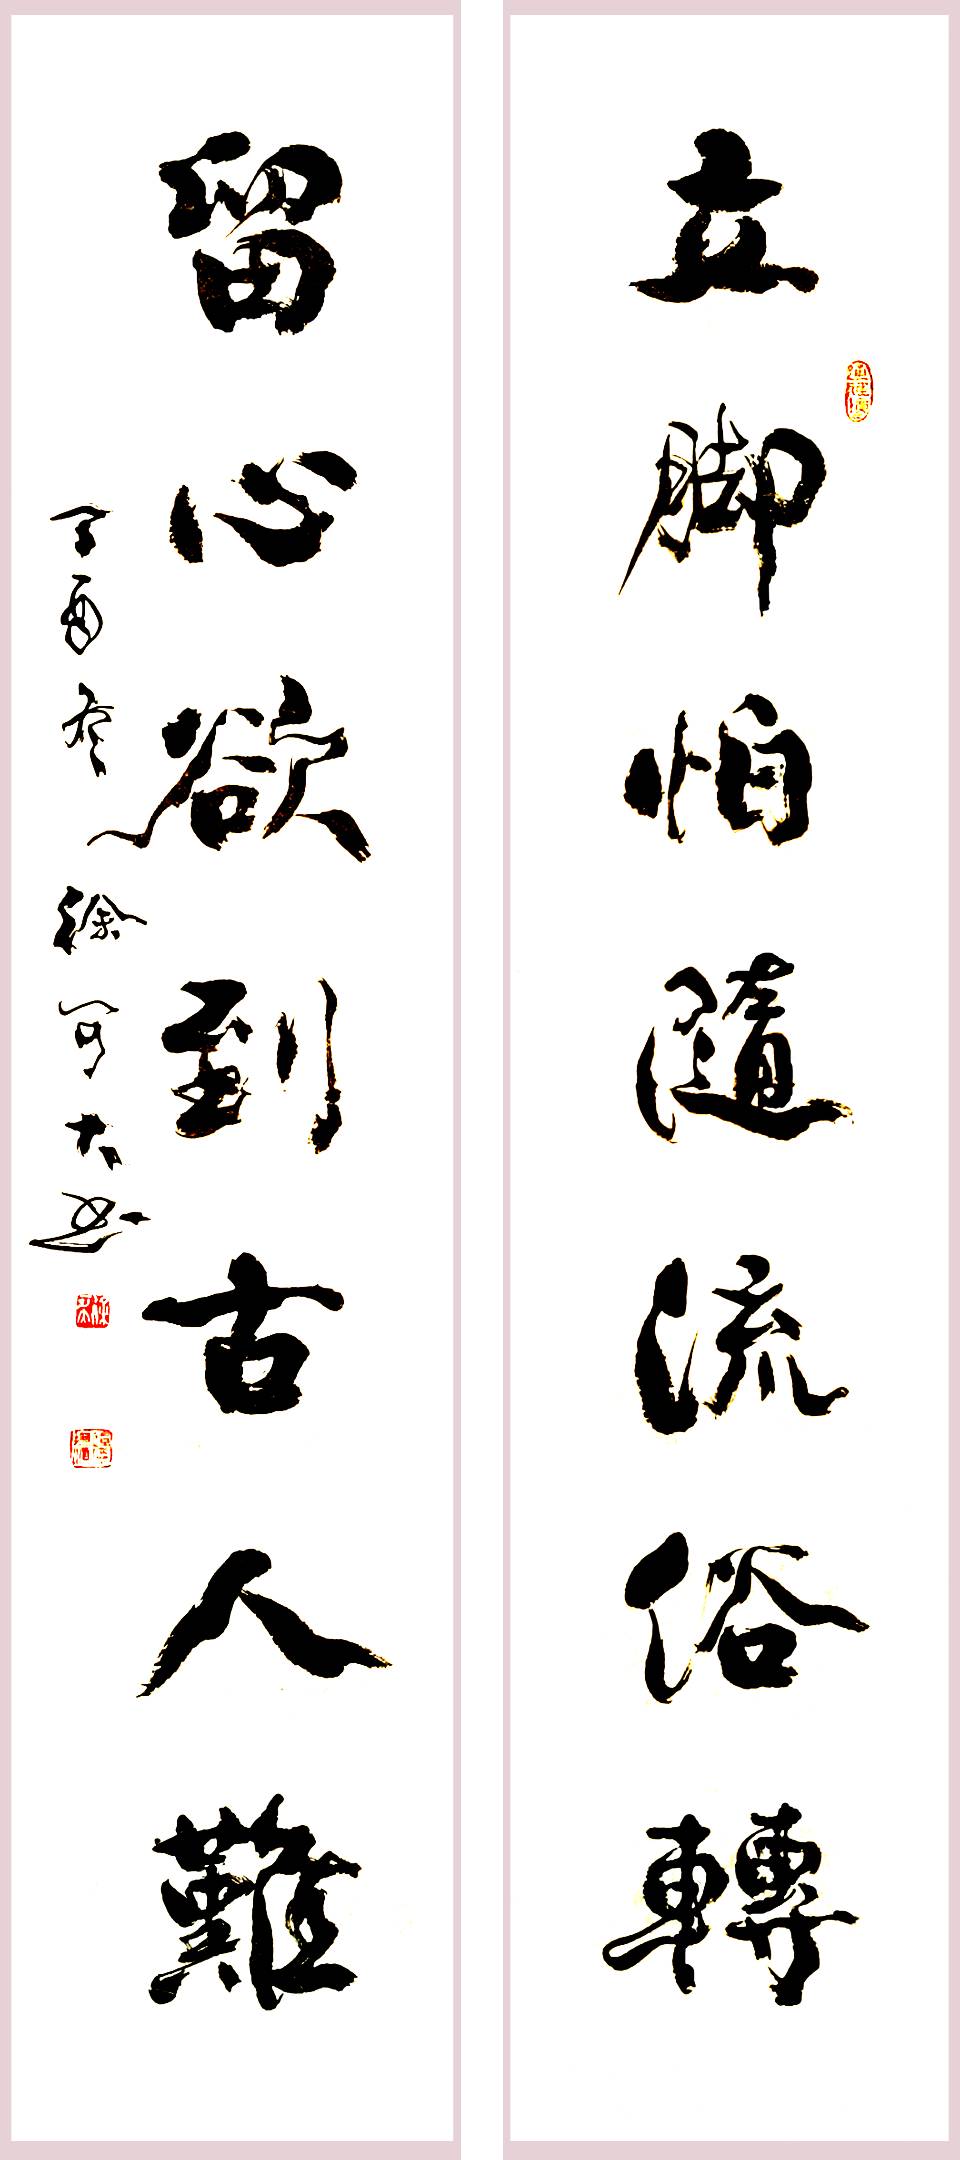 立脚怕隨流俗轉
留心欲到古人難
丁酉冬徐可大书